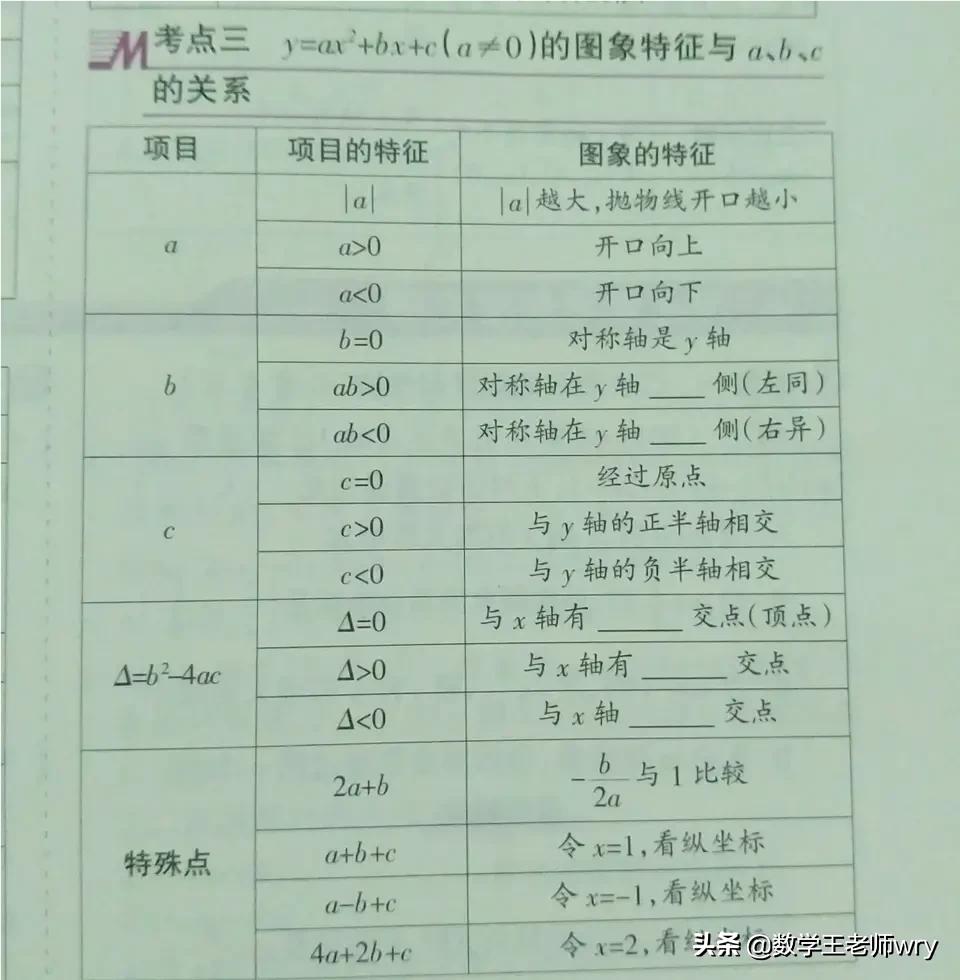 考点三 y=ax²+bx+c(a≠0)的图象特征与 a、b、c
的关系
项目 项目的特征 图象的特征
a
|a| |a|越大,抛物线开口越小
a>0 开口向上
a<0 开口向下
b
b=0 对称轴是 y 轴
ab>0 对称轴在 y 轴 ____ 侧(左同)
ab<0 对称轴在 y 轴 ____ 侧(右异)
c
c=0 经过原点
c>0 与 y 轴的正半轴相交
c<0 与 y 轴的负半轴相交
Δ=b²-4ac
Δ=0 与 x 轴有 ______ 交点(顶点)
Δ>0 与 x 轴有 ______ 交点
Δ<0 与 x 轴 ______ 交点
特殊点
2a+b -b/2a 与 1 比较
a+b+c 令 x=1,看纵坐标
a-b+c 令 x=-1,看纵坐标
4a+2b+c 令 x=2,看
头条 @数学王老师wry